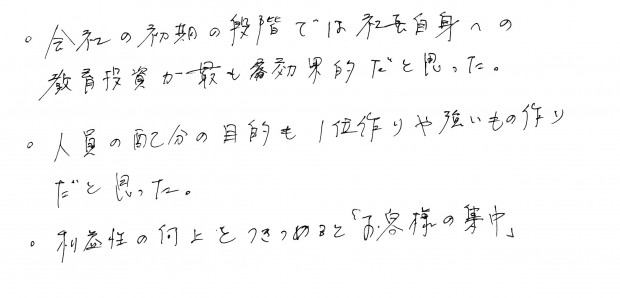 。会社の初期の段階では社長自身への
教育投資が最も効果的だと思った。
。人員の配分の目的も1位作りや強いもの作り
だと思った。
。利益性の向上をつきつめると「お客様の集中」